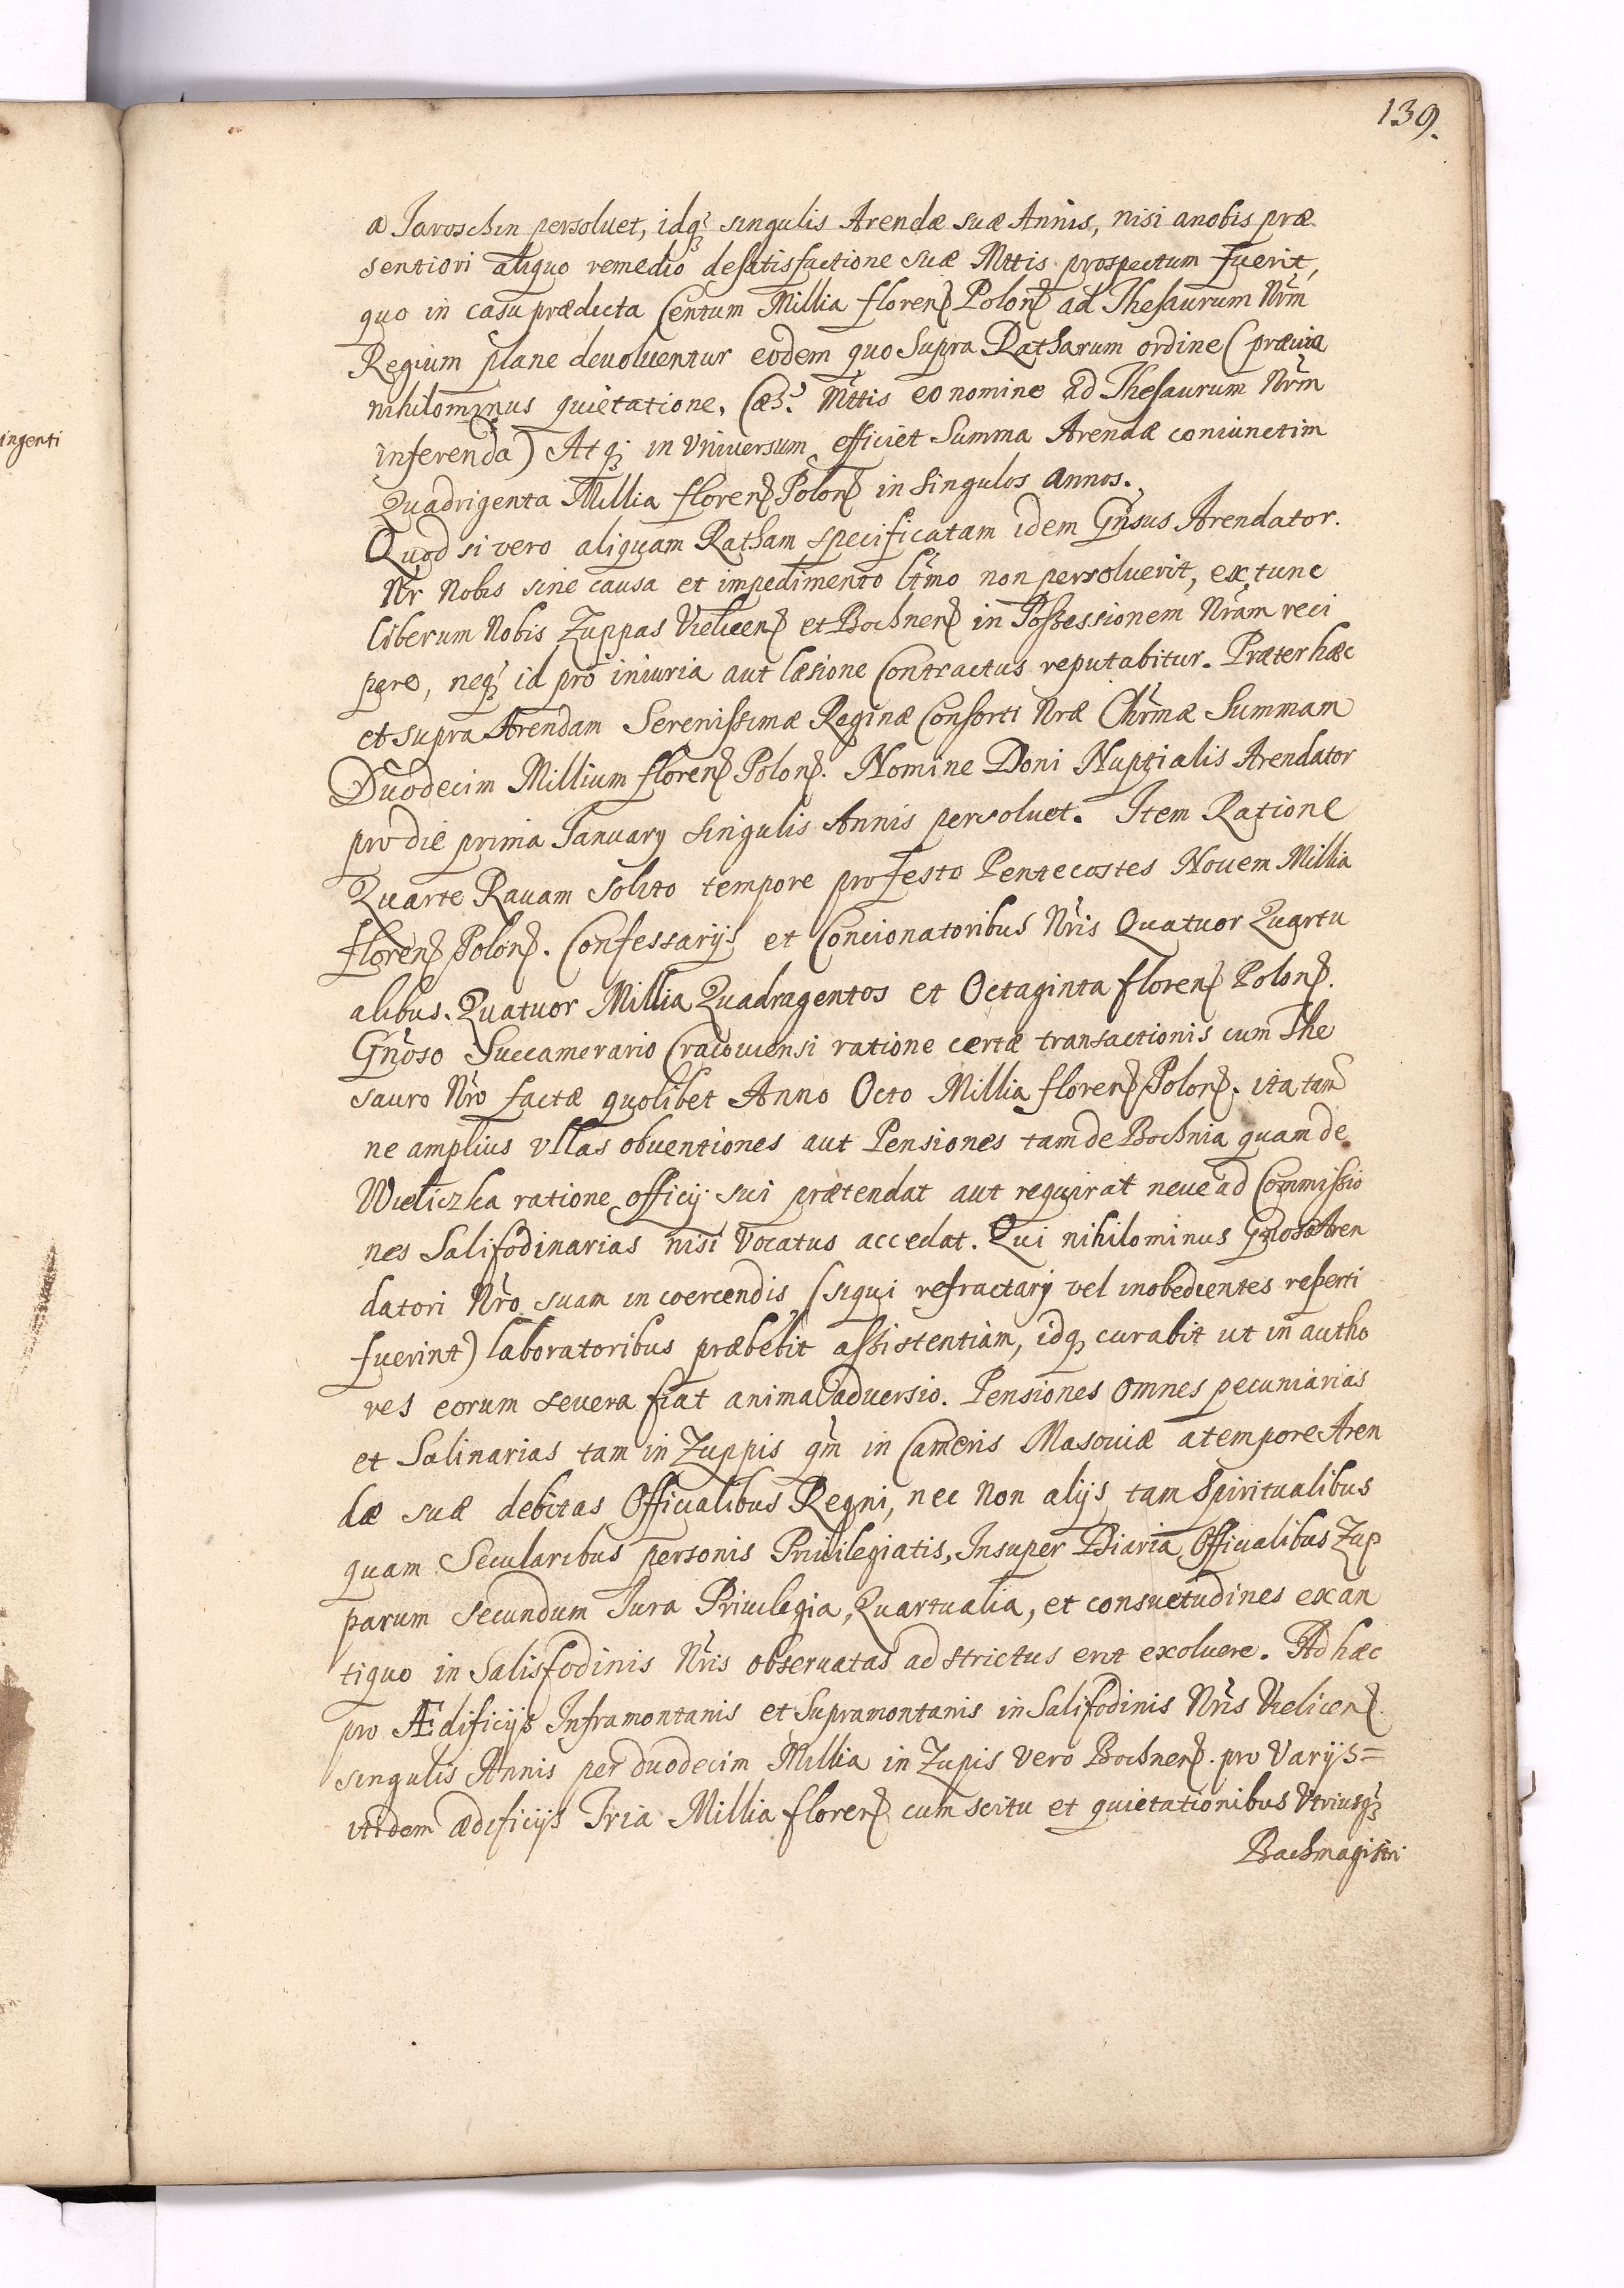 139.
ingenti
a Jaroschin persoluet, idq; singulis Arendæ suæ Annis, nisi anobis præ
sentiori aliquo remedio desatisfactione suæ Mttis prospectum fuerit,
quo in casu prædicta Centum Millia floren Polon ad Thesaurum Nrm
Regium plane deuoluentur eodem quo supra Ratharum ordine (præuia
nihilominus quietatione, Cæs: Mttis eo nomine ad Thesaurum Nrm
inferenda) Atq; in Vniuersum efficiet Summa Arendæ coniunctim
Quadrigenta Millia floren Polon in Singulos Annos.
Quod si vero aliquam Ratham specificatam idem Gnsus Arendator.
Nr Nobis sine causa et impedimento ltmo non persoluerit, ex tunc
liberum Nobis Zuppas Vielicen et Bochnen in Possessionem Nram reci
pere, neq; id pro iniuria aut læsione Contractus reputabitur. Præter hæc
et supra Arendam Serenissimæ Reginæ Consorti Nræ Chrmæ Summam
Duodecim Millium floren Polon. Nomine Doni Nuptialis Arendator
pro die prima January singulis Annis persoluet. Item Ratione
Quarte Rauam solito tempore pro festo Pentecostes Nouem Millia
floren Polon. Confessarijs et Concionatoribus Nris Quatuor Quartu
alibus. Quatuor Millia Quadragentos et Octaginta floren Polon.
Gnoso Succamerario Cracouiensi ratione certæ transactionis cum The
sauro Nro factæ quolibet Anno Octo Millia floren Polon. ita tan
ne amplius vllas obuentiones aut Pensiones tam de Bochnia quam de
Wieliczka ratione officij sui prætendat aut requirat neue ad Commissio
nes Salifodinarias nisi Vocatus accedat. Qui nihilominus Gnoso Aren
datori Nro suam in coercendis (siqui refractarij vel inobedientes reperti
fuerint) laboratoribus præbebit assistentiam, idq; curabit ut in autho
res eorum seuera fiat animaduersio. Pensiones omnes pecuniarias
et Salinarias tam in Zuppis qm in Cameris Masouiæ a tempore Aren
dæ suæ debitas Officialibus Regni, nec non alijs tam Spiritualibus
quam Secularibus personis Priuilegiatis, Insuper Diaria Officialibus Zup
parum secundum Jura Priuilegia, Quartualia, et consuetudines ex an
tiquo in Salisfodinis Nris obseruatas adstrictus erit exoluere. Ad hæc
pro Ædificijs Inframontanis et Supramontanis in Salifodinis Nris Vielicen.
singulis Annis per duodecim Millia in Zupis vero Bochnen. pro Varijs=
itidem ædificijs Tria Millia floren cum scitu et quietationibus Vtriusq;
Bachmagistri